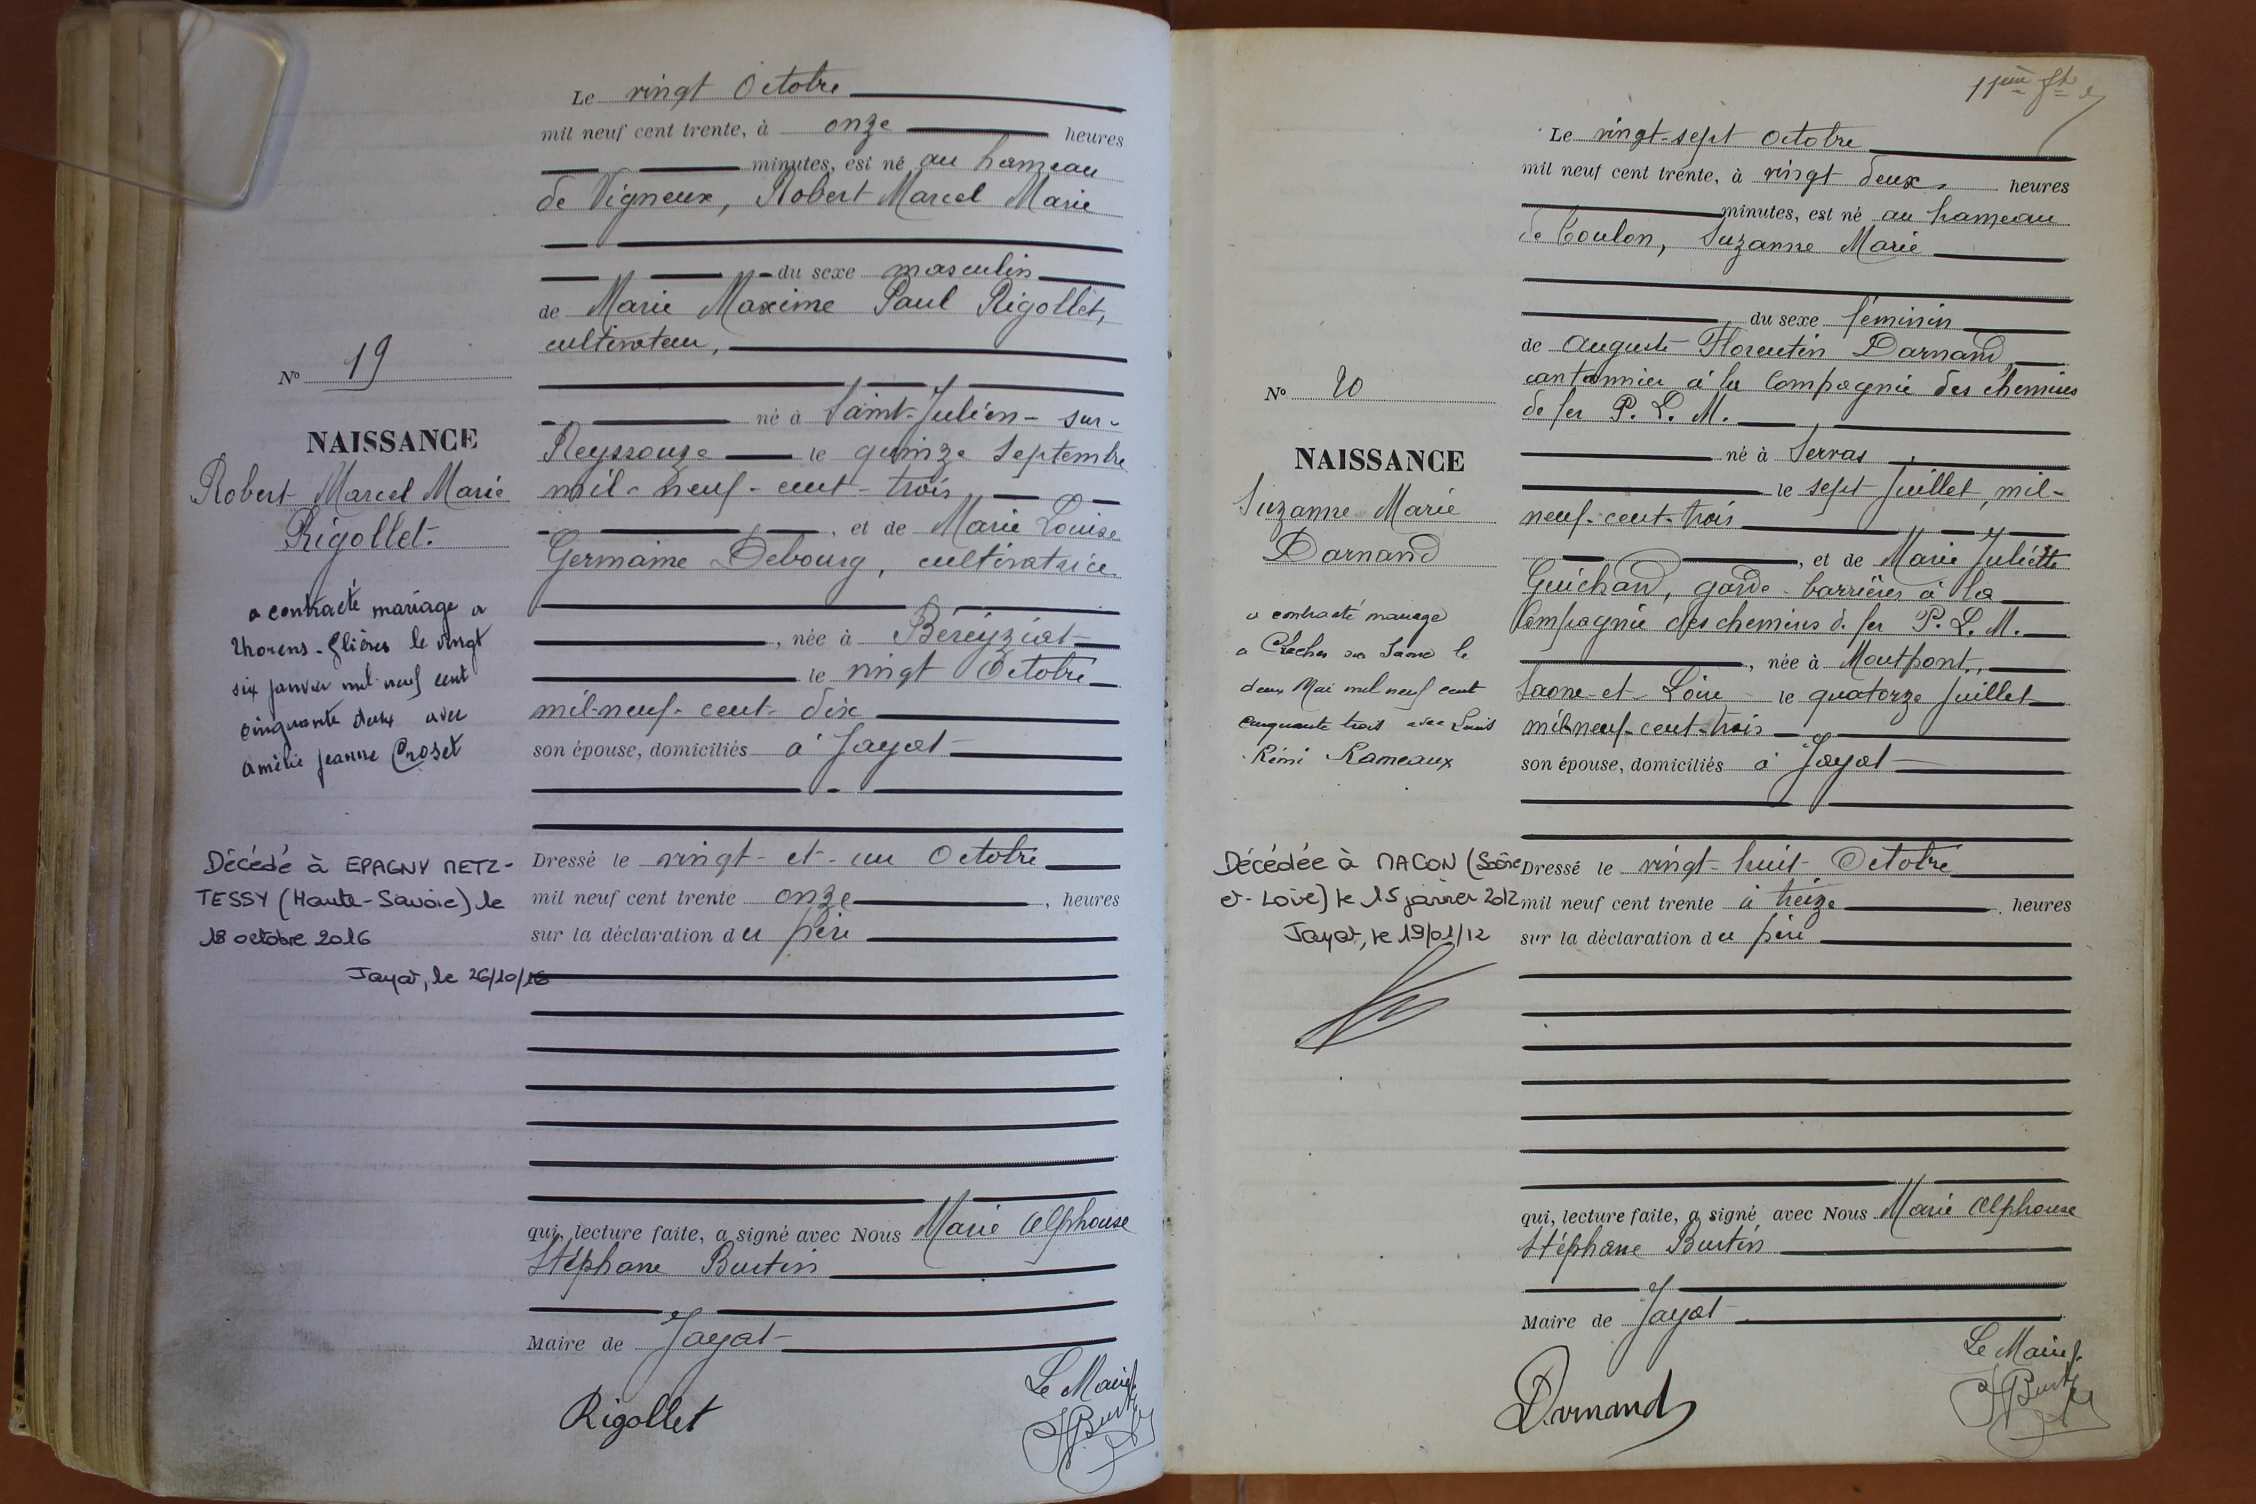 Le vingt Octobre
mil neuf cent trente, à onze heures
minutes, est né au hameau
de Vigneux, Robert Marcel Marie
du sexe masculin
de Marie Maxime Paul Rigollet,
cultivateur,
né à Saint-Julien-sur-
Reyssouze le quinze Septembre
mil-neuf-cent-trois
, et de Marie Louise
Germaine Debourg, cultivatrice
, née à Béréyziat
le vingt Octobre
mil-neuf-cent-dix
son épouse, domiciliés à Jayat
Dressé le vingt-et-un Octobre
mil neuf cent trente onze , heures
sur la déclaration du père
qui, lecture faite, a signé avec Nous Marie Alphonse
Stéphane Burtin
Maire de Jayat
Le Maire
Rigollet
Nº 19
NAISSANCE
Robert Marcel Marie
Rigollet.
a contracté mariage a
Thorens-Glières le vingt
six janvier mil neuf cent
cinquante deux avec
Amélie Jeanne Croset
Décédé à EPAGNY METZ-
TESSY (Haute-Savoie) le
18 octobre 2016
Jayat, le 26/10/16
11ème
Le vingt-sept Octobre
mil neuf cent trente, à vingt deux heures
minutes, est né au hameau
de Coulon, Suzanne Marie
du sexe féminin
de Auguste Florentin Darnand,
cantonnier à la Compagnie des chemins
de fer P. L. M.
né à Servas
le sept Juillet, mil-
neuf-cent-trois
, et de Marie Juliette
Guichard, garde-barrières à la
Compagnie des chemins de fer P. L. M.
, née à Montpont,
Saone-et-Loire le quatorze Juillet
mil-neuf-cent-trois
son épouse, domiciliés à Jayat
Dressé le vingt-huit Octobre
mil neuf cent trente à treize heures
sur la déclaration du père
qui, lecture faite, a signé avec Nous Marie Alphonse
Stéphane Burtin
Maire de Jayat
Le Maire
Darnand
Nº 20
NAISSANCE
Suzanne Marie
Darnand
a contracté mariage
a Crèches sur Saone le
deux Mai mil neuf cent
cinquante trois avec Louis
Rémi Rameaux
Décédée à MACON (Saône
et-Loire) le 15 janvier 2012
Jayat, le 19/01/12